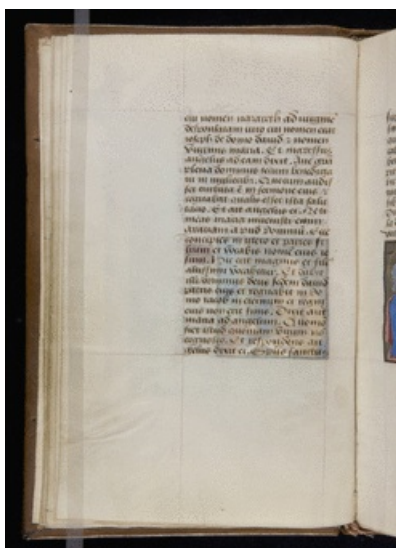 cui nomen nazareth ad virginē
desponsatam viro cui nomen erat
ioseph de domo dauid et nomen
virginis maria. Et ingressus
angelus ad eam dixit. Aue gra
plena dominus tecum benedicta
tu in mulieribꝰ. Que cum audis
set turbata ē in sermone eius et
cogitabat qualis esset ista salu
tatio. Et ait angelus ei. Ne ti
meas maria inuenisti enim
gratiam apud dominū. Ecce
concipies in utero et paries fi
lium et vocabis nomē eius ie
sum. Hic erit magnus et filiꝰ
altissimi vocabitur. Et dabit
illi dominus deus sedem dauid
patris eius et regnabit in do
mo iacob in eternum et regni
eius non erit finis. Dixit aut
maria ad angelum. Quomō
fiet istud quoniam virum nō
cognosco. Et respondens an
gelus dixit ei. Spūs sanctus